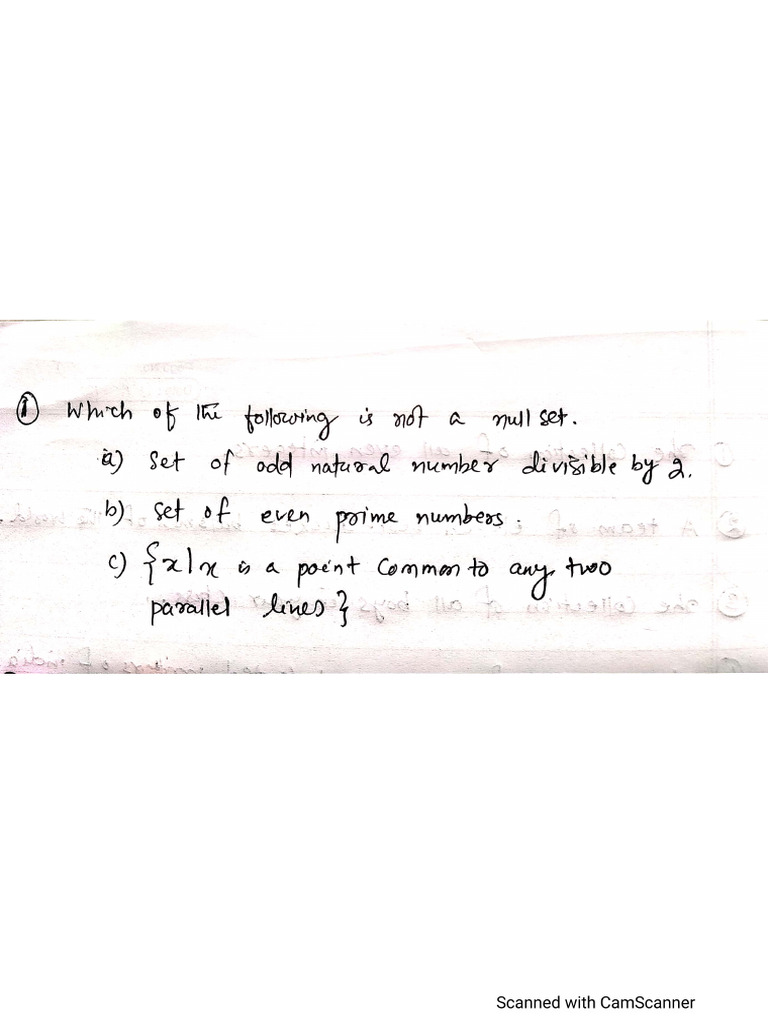 ① Which of the following is not a null set.
a) set of odd natural number divisible by 2.
b) set of even prime numbers.
c) {x|x is a point common to any two
parallel lines}
Scanned with CamScanner